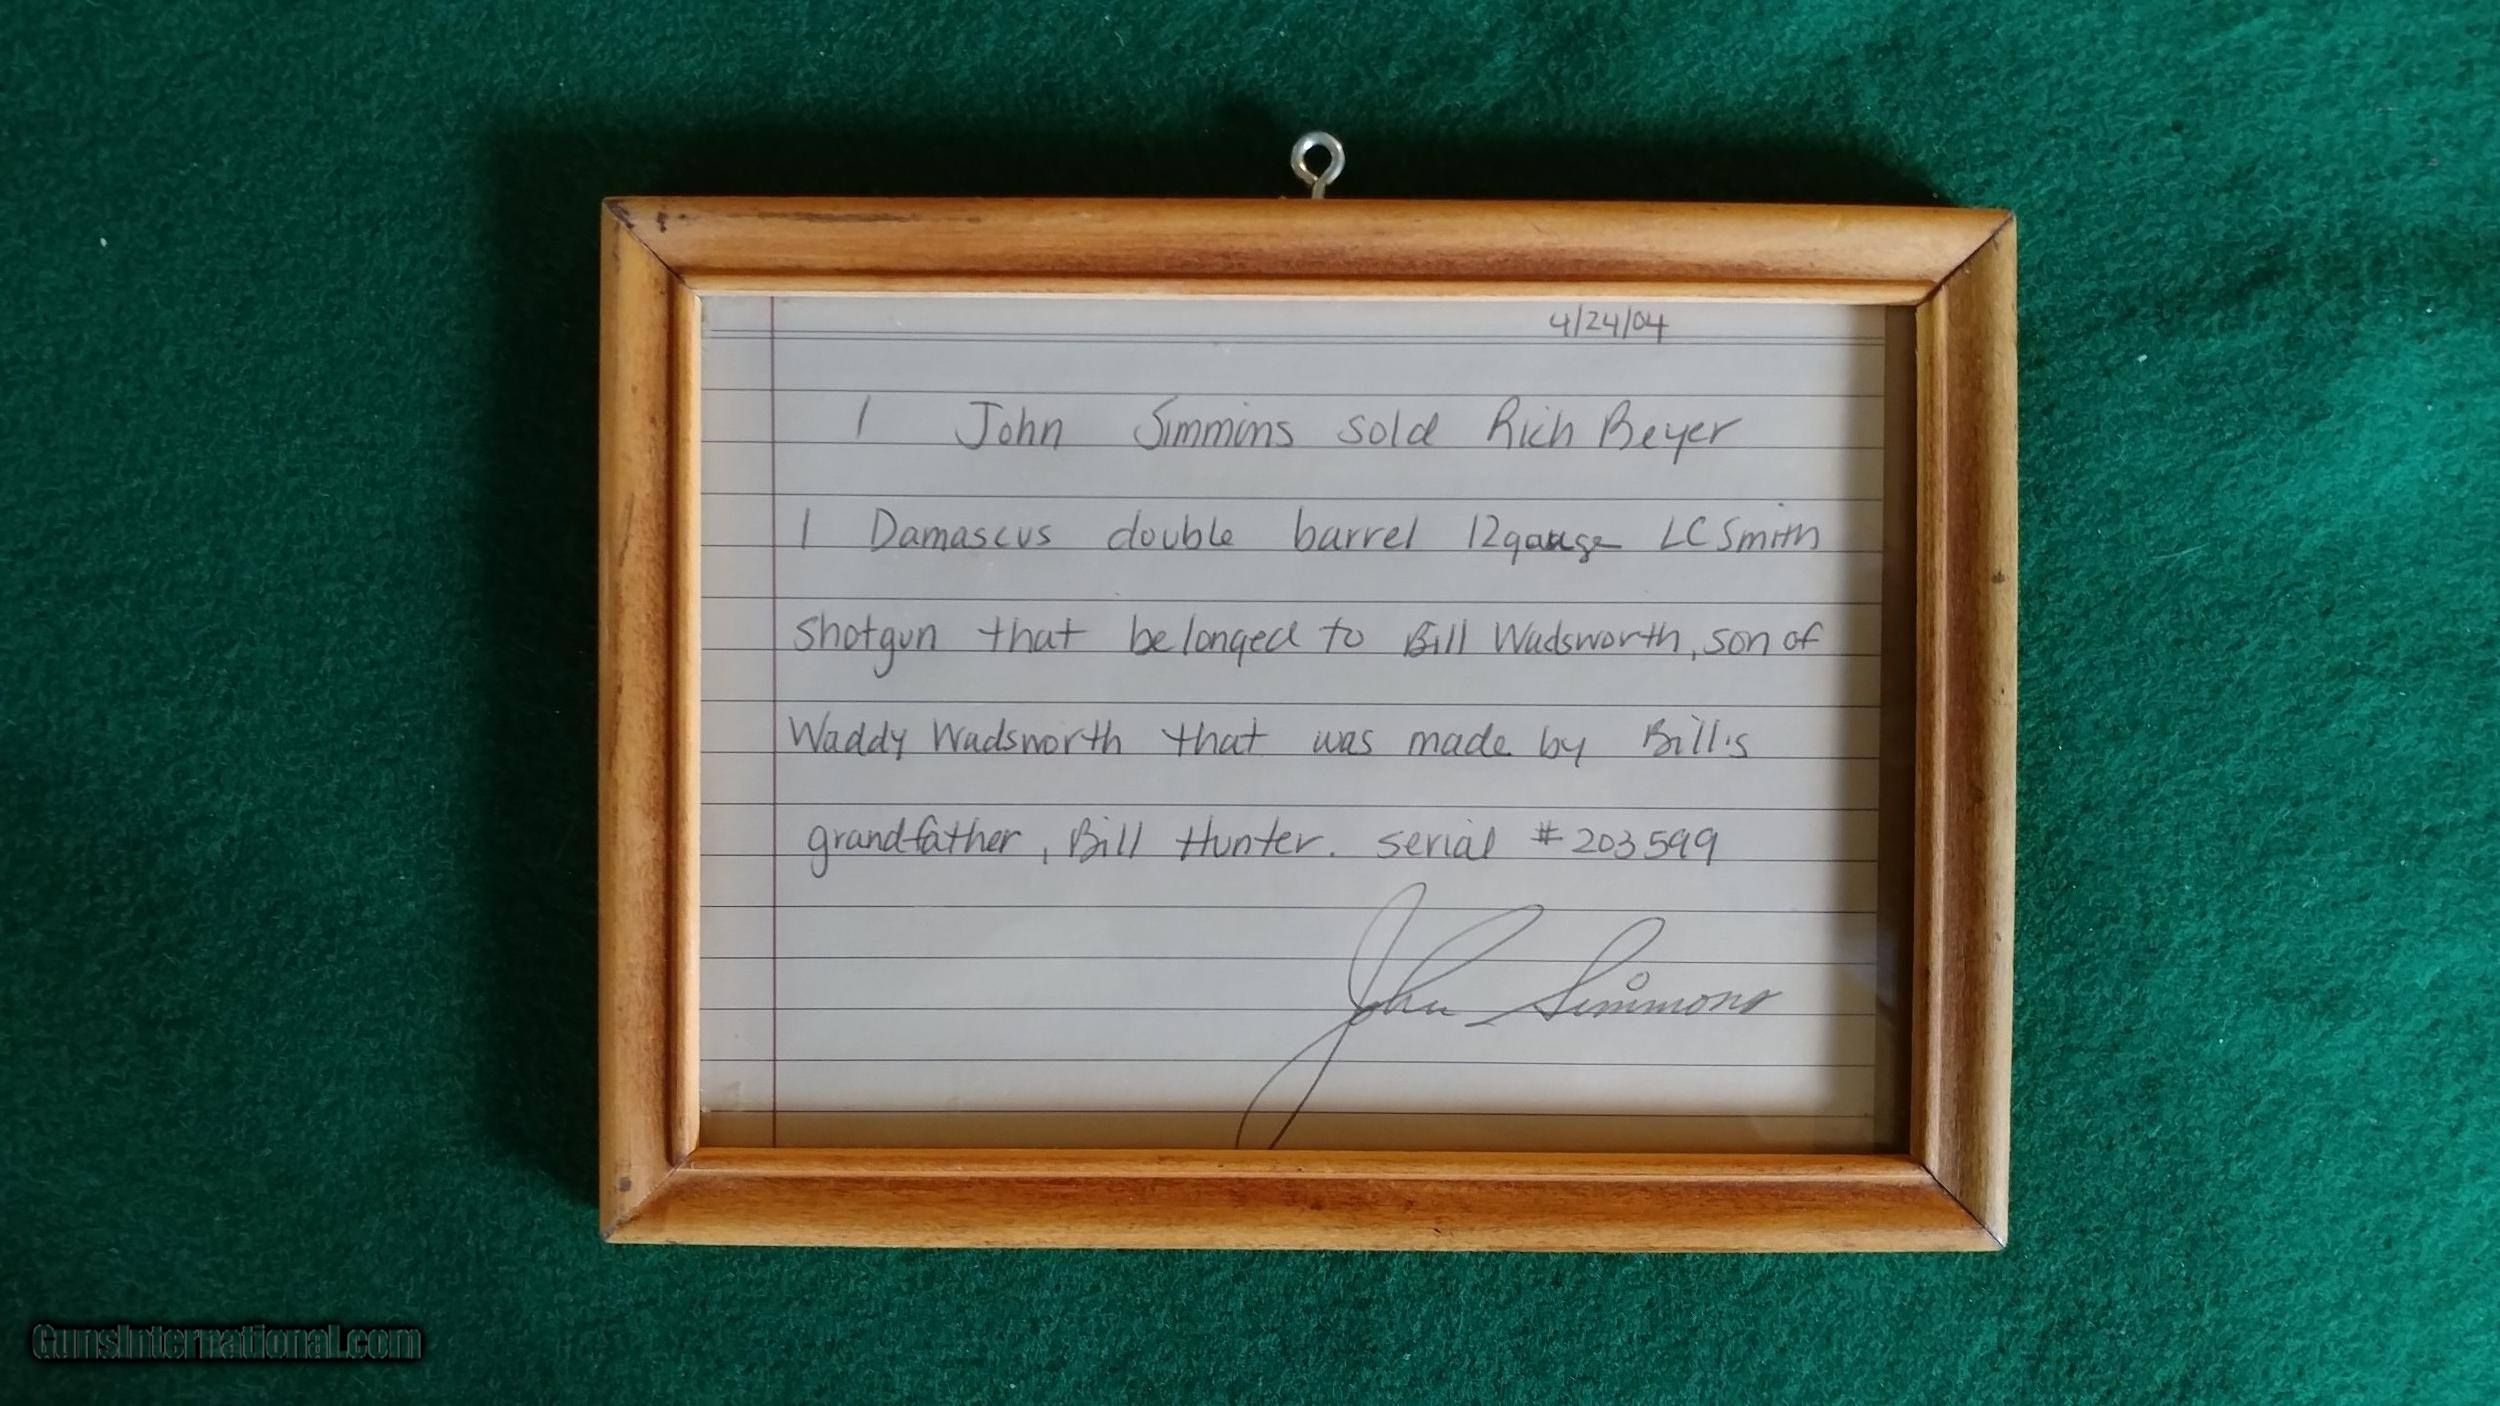 4/24/04
I John Simmins sold Rich Beyer
1 Damascus double barrel 12gauge LC Smith
shotgun that belonged to Bill Wadsworth, son of
Waddy Wadsworth that was made by Bill's
grandfather, Bill Hunter. serial #203599
John Simmons
GunsInternational.com